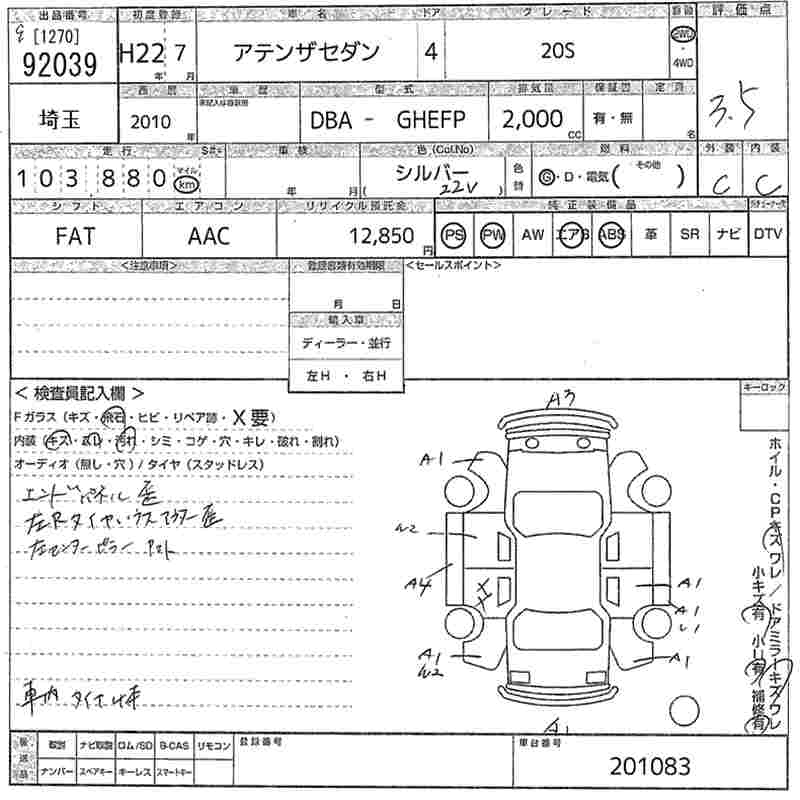 出品番号 初度登録 車名 ドア グレード 駆動 評価点
[1270]
92039 H22 7 アテンザセダン 4 20S 2WD
・
4WD
年 月
埼玉 西暦 車歴 型式 排気量 保証書 定員 3.5
2010 年 DBA - GHEFP 2,000 cc 有・無 名
走行 S#+ 車検 色(Col.No) 燃料 外装 内装
103,880 マイル km 年 月 シルバー 色替 G・D・電気( その他 ) C C
( 22V )
シフト エアコン リサイクル預託金 純正装備品
FAT AAC 12,850 円 PS PW AW エアB ABS 革 SR ナビ DTV
<注意事項> 登録書類有効期限 <セールスポイント>
月 日
輸入車
ディーラー・並行
左H ・ 右H
< 検査員記入欄 > キーロック
Fガラス(キズ・飛石・ヒビ・リペア跡・X要)
内装(キズ・汚れ・シミ・コゲ・穴・キレ・破れ・割れ)
オーディオ(無し・穴)/タイヤ(スタッドレス)
エンドパネル 歪
左Rタイヤハウスアウター歪
左センターピラー
車内
A3
A1
A4
A1
A1
U1
A1
A1
A1
ホイル・CPキズワレ/ドアミラーキズワレ
小キズ有 小U有 補修有
後送品 取説 ナビ取説 ロム/SD B-CAS リモコン 登録番号 車台番号
ナンバー スペアキー キーレス スマートキー 201083